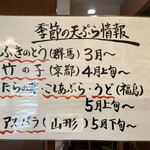 季節の天ぷら情報
ふきのとう(群馬)3月〜
竹の子(京都)4月上旬〜
たらの芽・こしあぶら・うど(福島)
5月上旬〜
アスパラ(山形)5月下旬〜